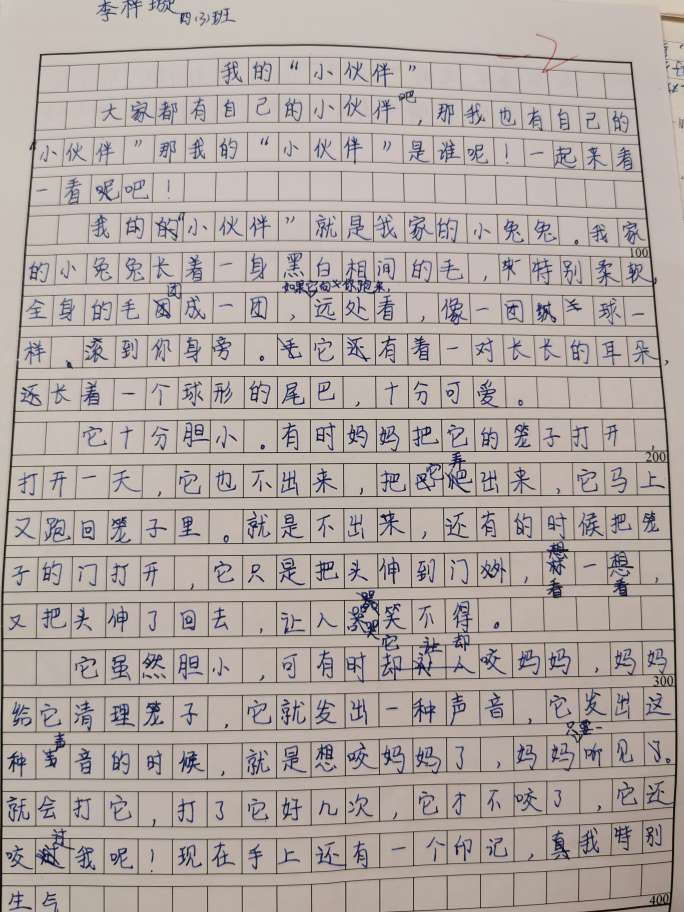 李梓璇 四(3)班
-2
我的“小伙伴”
大家都有自己的小伙伴吧，那我也有自己的
“小伙伴”那我的“小伙伴”是谁呢！一起来看
一看呢吧！
我的的“小伙伴”就是我家的小兔兔。我家
的小兔兔长着一身黑白相间的毛，特别柔软，
如果它向你跑来，
全身的毛团成一团，远处看，像一团球一
样。滚到你身旁。它还有着一对长长的耳朵，
还长着一个球形的尾巴，十分可爱。
它十分胆小。有时妈妈把它的笼子打开，
打开一天，它也不出来，把它弄出来，它马上
又跑回笼子里。就是不出来，还有的时候把笼
子的门打开，它只是把头伸到门外，看一看，
又把头伸了回去，让人哭笑不得。
它虽然胆小，可有时它却让人咬妈妈，妈妈
给它清理笼子，它就发出一种声音，它发出这
种声音的时候，就是想咬妈妈了，妈妈只要一听见了。
就会打它，打了它好几次，它才不咬了，它还
咬过我呢！现在手上还有一个印记，真我特别
生气
100
200
300
400